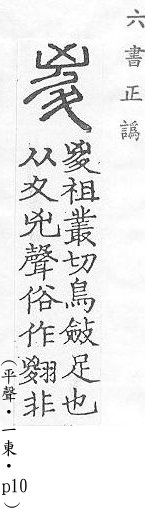 六書正譌
㚇
㚇祖叢切鳥斂足也
从夊兇聲俗作翪非
（平聲・一東・p10）